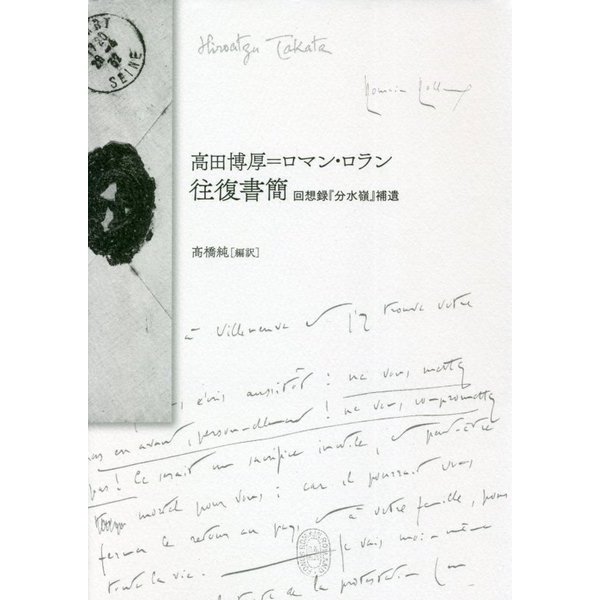 SEINE
Hiroatsu Takata
Romain Rolland
高田博厚=ロマン・ロラン
往復書簡 回想録『分水嶺』補遺
高橋純[編訳]
à Villeneuve et j'y trouve votre
écris aussitôt : ne vous mettez
pas en avant, personnellement ! ne vous compromettez
pas ! Ce serait un sacrifice inutile, et peut-être
mortel pour vous : car il pourrait vous
fermer le retour au pays, et à votre famille, pour
toute la vie. Je vais moi-même
de la protestation